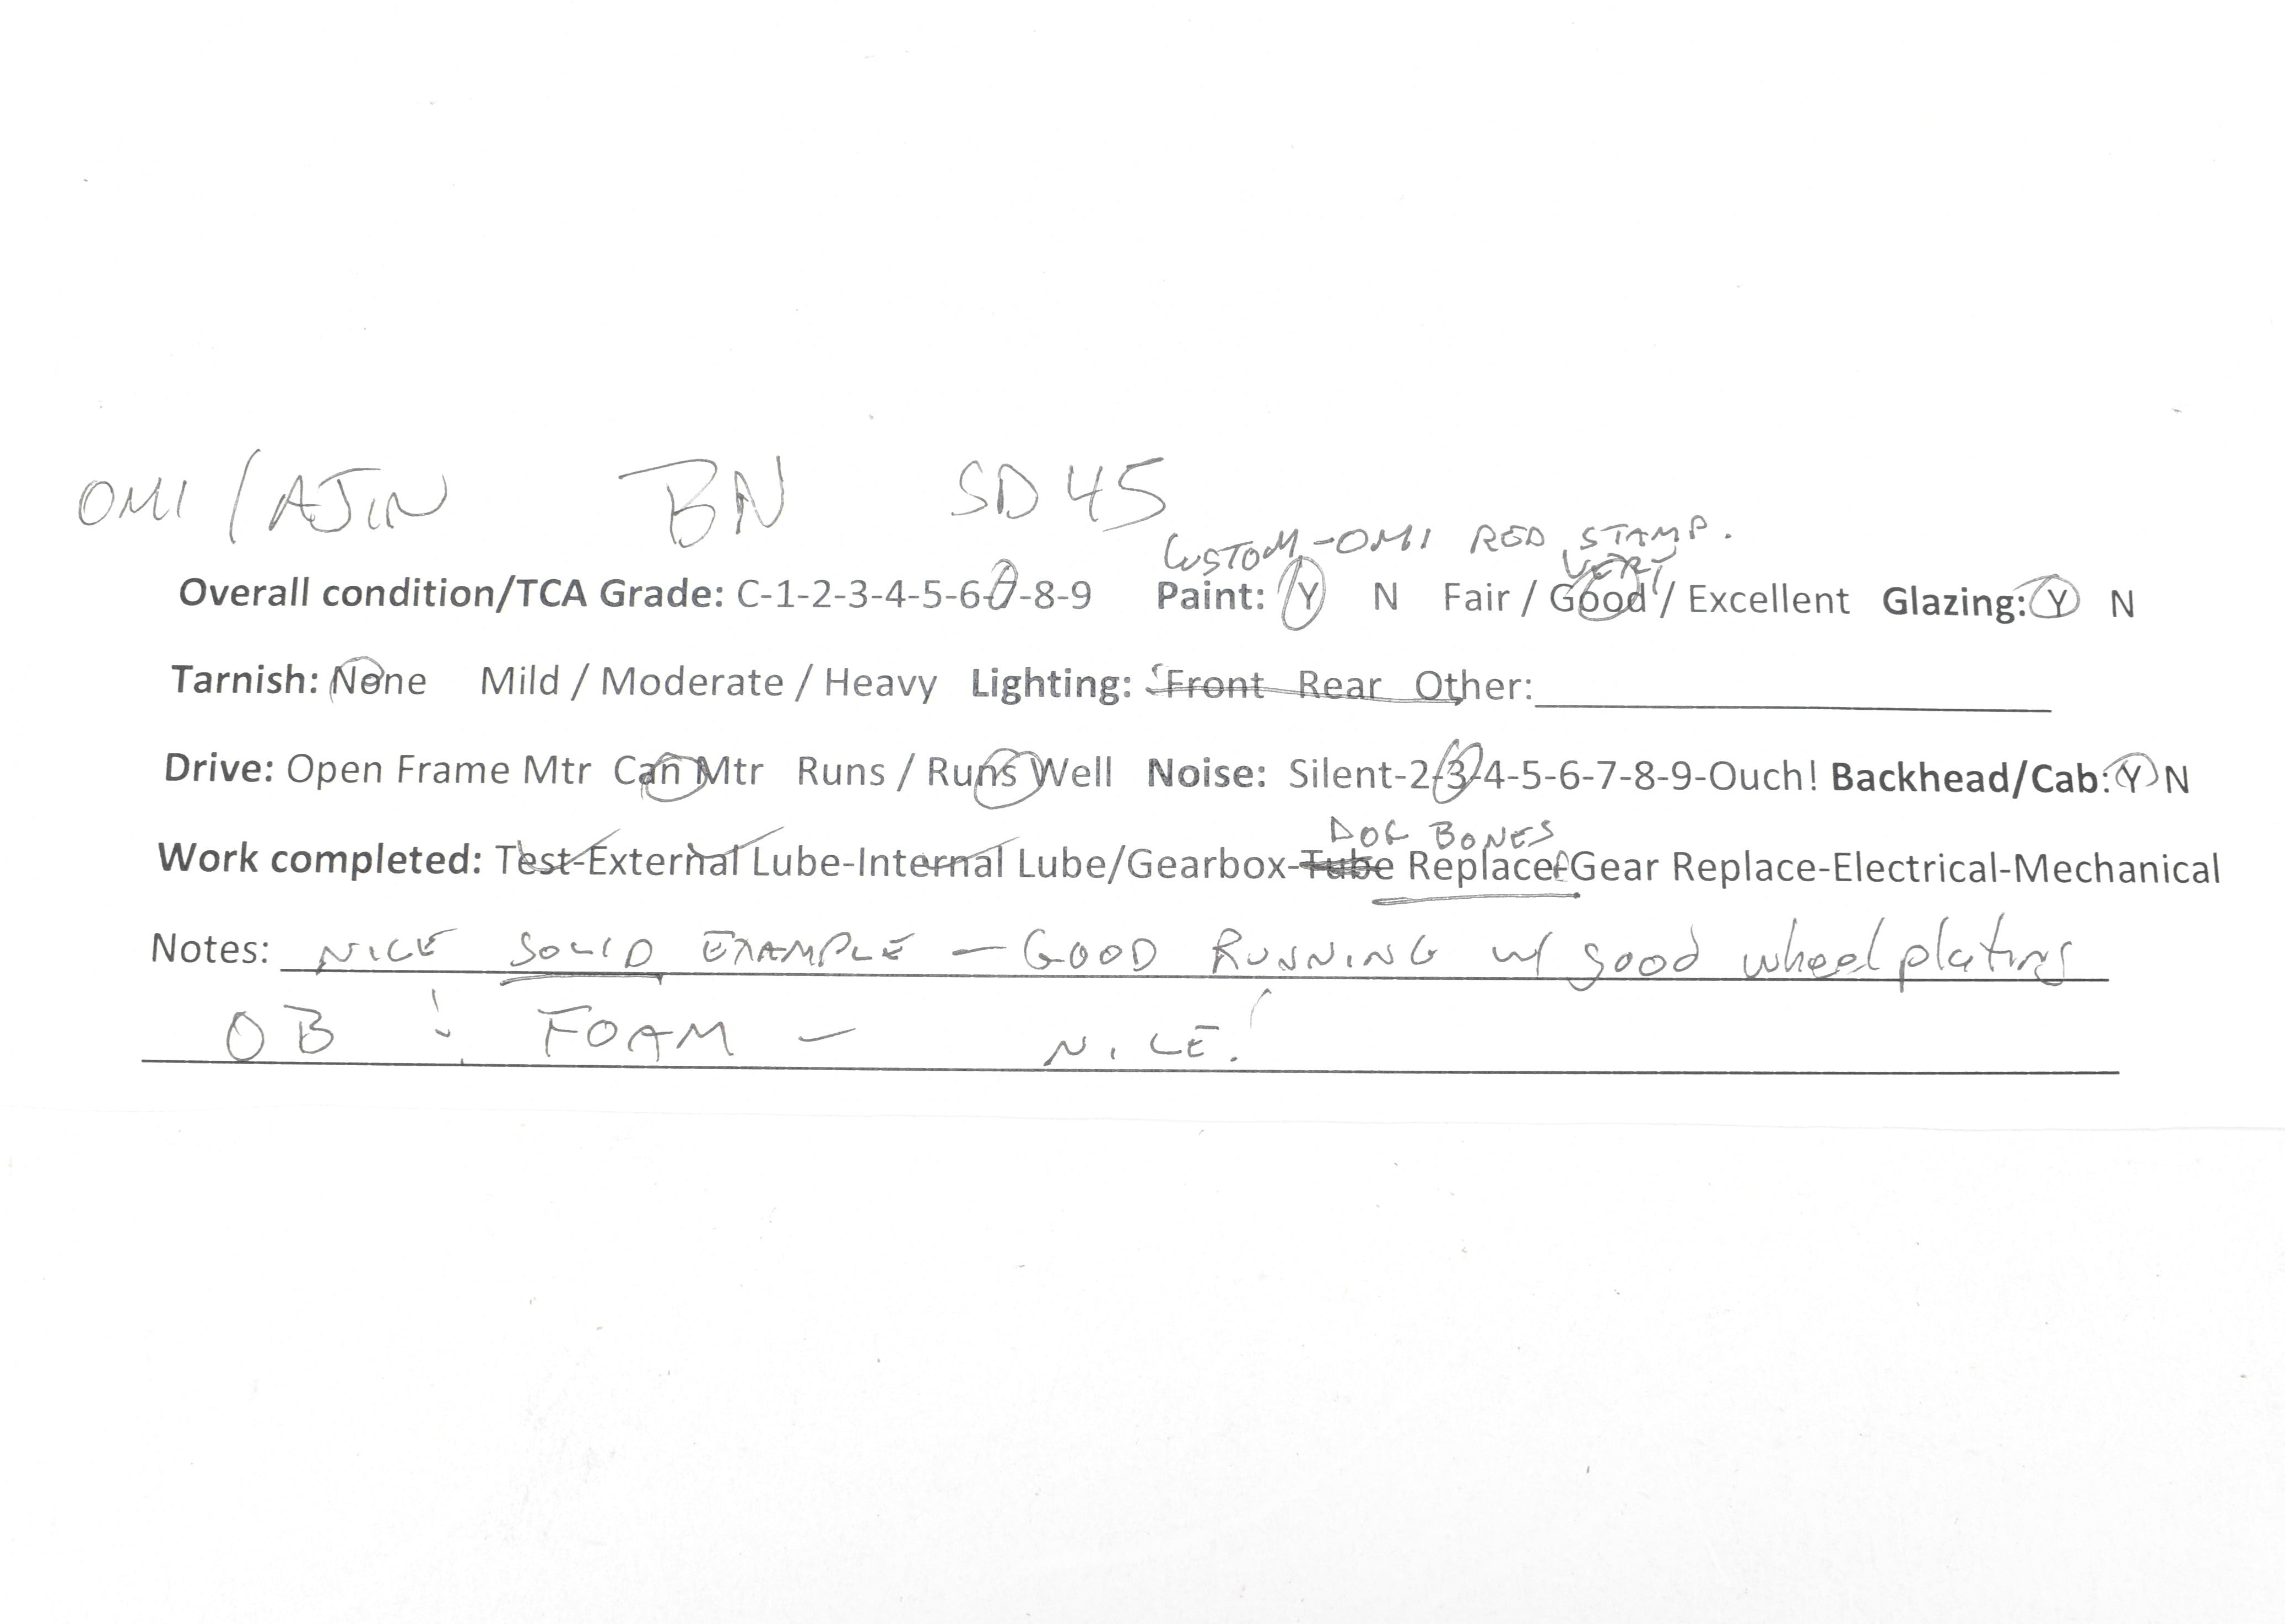 OMI / AJIN BN SD 45
CUSTOM - OMI RED STAMP.
VERY
Overall condition/TCA Grade: C-1-2-3-4-5-6-7-8-9 Paint: Y N Fair / Good / Excellent Glazing: Y N
Tarnish: None Mild / Moderate / Heavy Lighting: Front Rear Other:
Drive: Open Frame Mtr Can Mtr Runs / Runs Well Noise: Silent-2-3-4-5-6-7-8-9-Ouch! Backhead/Cab: Y N
DOG BONES
Work completed: Test-External Lube-Internal Lube/Gearbox-Tube Replace-Gear Replace-Electrical-Mechanical
Notes: NICE SOLID EXAMPLE — GOOD RUNNING w/ good wheel plating
OB ! FOAM — NICE!